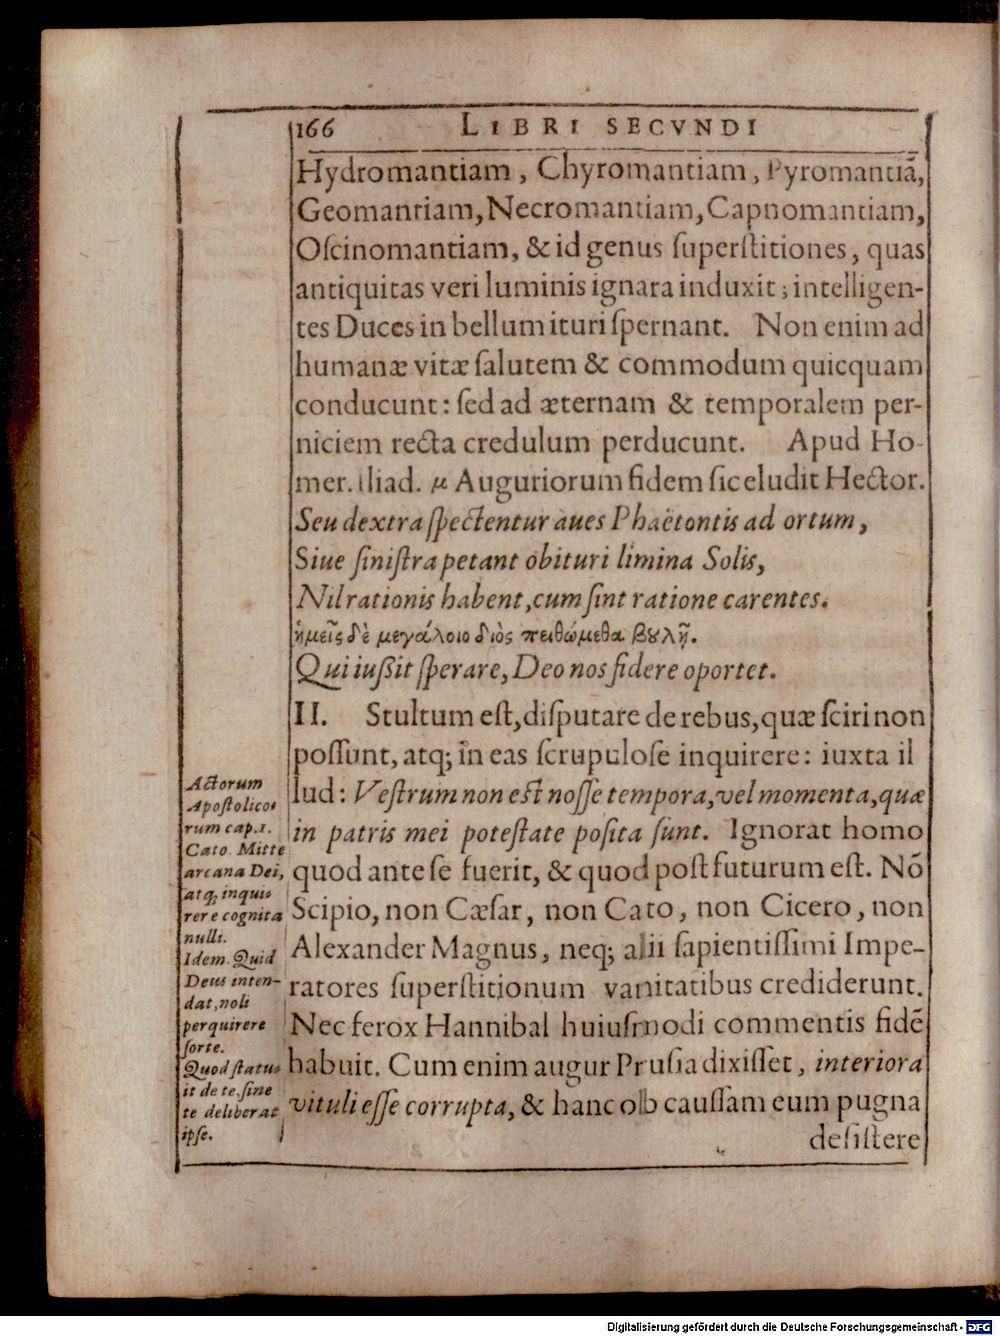 166 LIBRI SECVNDI
Hydromantiam, Chyromantiam, Pyromantiā,
Geomantiam, Necromantiam, Capnomantiam,
Oſcinomantiam, & id genus ſuperſtitiones, quas
antiquitas veri luminis ignara induxit; intelligen-
tes Duces in bellum ituri ſpernant. Non enim ad
humanæ vitæ ſalutem & commodum quicquam
conducunt: ſed ad æternam & temporalem per-
niciem recta credulum perducunt. Apud Ho-
mer. Iliad. μ Auguriorum fidem ſic eludit Hector.
Seu dextra ſpectentur aues Phaëtontis ad ortum,
Siue ſiniſtra petant obituri limina Solis,
Nil rationis habent, cum ſint ratione carentes.
ἡμεῖς δὲ μεγάλοιο διὸς πειθώμεθα βουλῇ.
Qui iußit ſperare, Deo nos fidere oportet.
II. Stultum eſt, diſputare de rebus, quæ ſciri non
poſſunt, atq; in eas ſcrupuloſe inquirere: iuxta il
lud: Veſtrum non eſt noſſe tempora, vel momenta, quæ
in patris mei poteſtate poſita ſunt. Ignorat homo
quod ante ſe fuerit, & quod poſt futurum eſt. Nō
Scipio, non Cæſar, non Cato, non Cicero, non
Alexander Magnus, neq; alii ſapientiſſimi Impe-
ratores ſuperſtitionum vanitatibus crediderunt.
Nec ferox Hannibal huiuſmodi commentis fidē
habuit. Cum enim augur Pruſia dixiſſet, interiora
vituli eſſe corrupta, & hanc ob cauſſam eum pugna
deſiſtere
Actorum
Apoſtolico-
rum cap. 1.
Cato. Mitte
arcana Dei,
atq; inqui-
rere cognita
nulli.
Idem. Quid
Deus inten-
dat, noli
perquirere
ſorte.
Quod ſtatu-
it de te, ſine
te deliberat
ipſe.
Digitalisierung gefördert durch die Deutsche Forschungsgemeinschaft - DFG